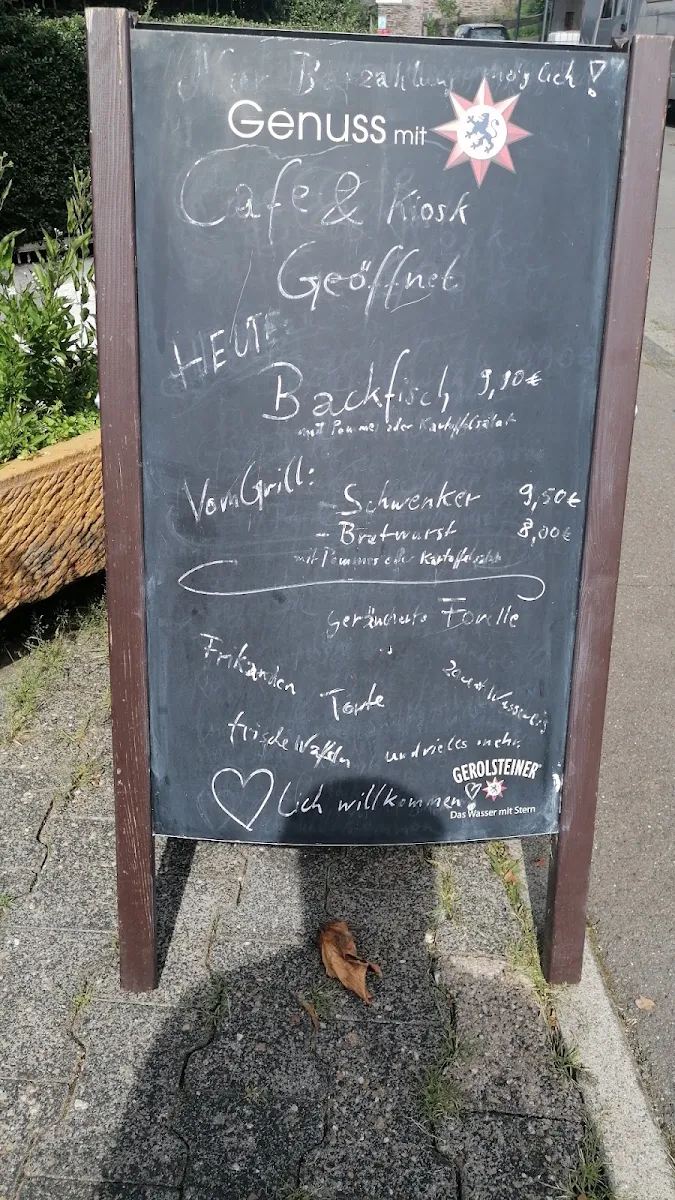 Nur Barzahlung möglich!
Genuss mit
Cafe & Kiosk
Geöffnet
HEUTE
Backfisch 9,90€
mit Pommes oder Kartoffelsalat
Vom Grill: - Schwenker 9,50€
- Bratwurst 8,00€
mit Pommes oder Kartoffelsalat
geräucherte Forelle
Frikandeln
Torte
frische Waffeln und vieles mehr
♡lich willkommen!
GEROLSTEINER
Das Wasser mit Stern